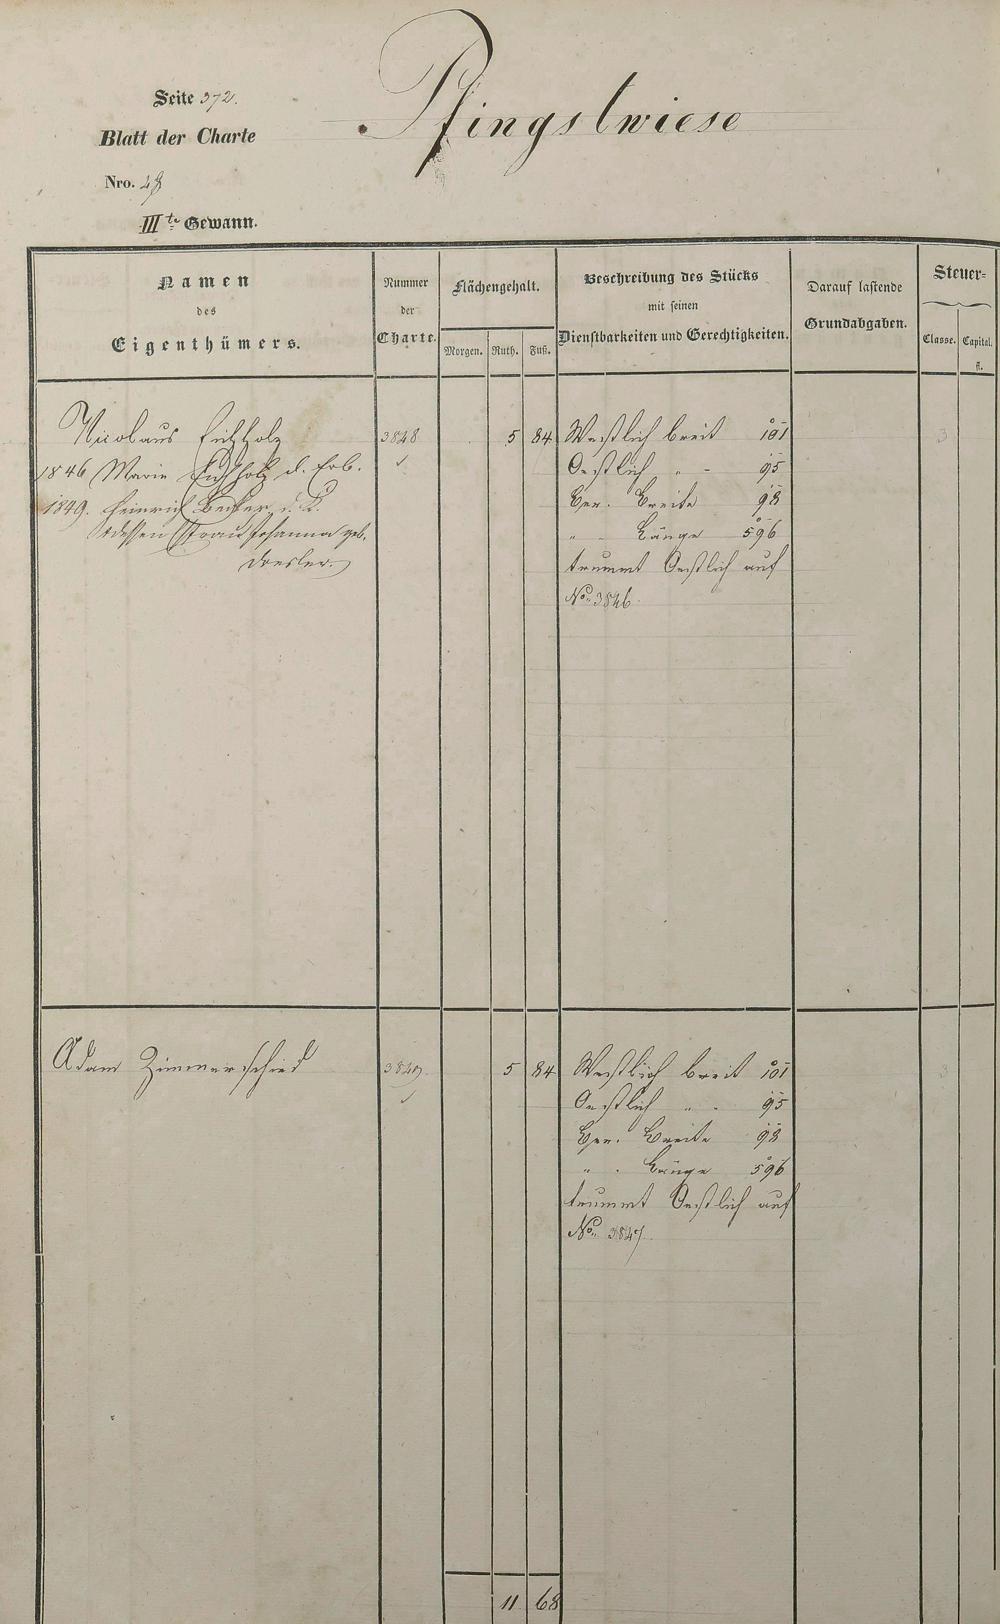 Seite 372.
Pfingstwiese
Blatt der Charte
Nro.
III te Gewann.
Namen
des
Eigenthümers.
Nummer
der
Charte.
Flächengehalt.
Morgen. Ruth. Fuß.
Beschreibung des Stücks
mit seinen
Dienstbarkeiten und Gerechtigkeiten.
Darauf lastende
Grundabgaben.
Steuer=
Classe. Capital.
fl.
Nicolaus Eichholz 3848 5 84 Westlich breit 101 3
1846 Marie Eichholz d. Erb. Oestlich " - 95
1849. Heinrich Becker d. Ber. Breite 98
dessen Frau Johanna geb. " - Länge 596
Dresler. trummt Oestlich auf
No. 3846.
Adam Zimmerschied 3849. 5 84 Westlich breit 101 3
Oestlich " - 95
Ber. Breite 98
" - Länge 596
trummt Oestlich auf
No. 3847.
11 68